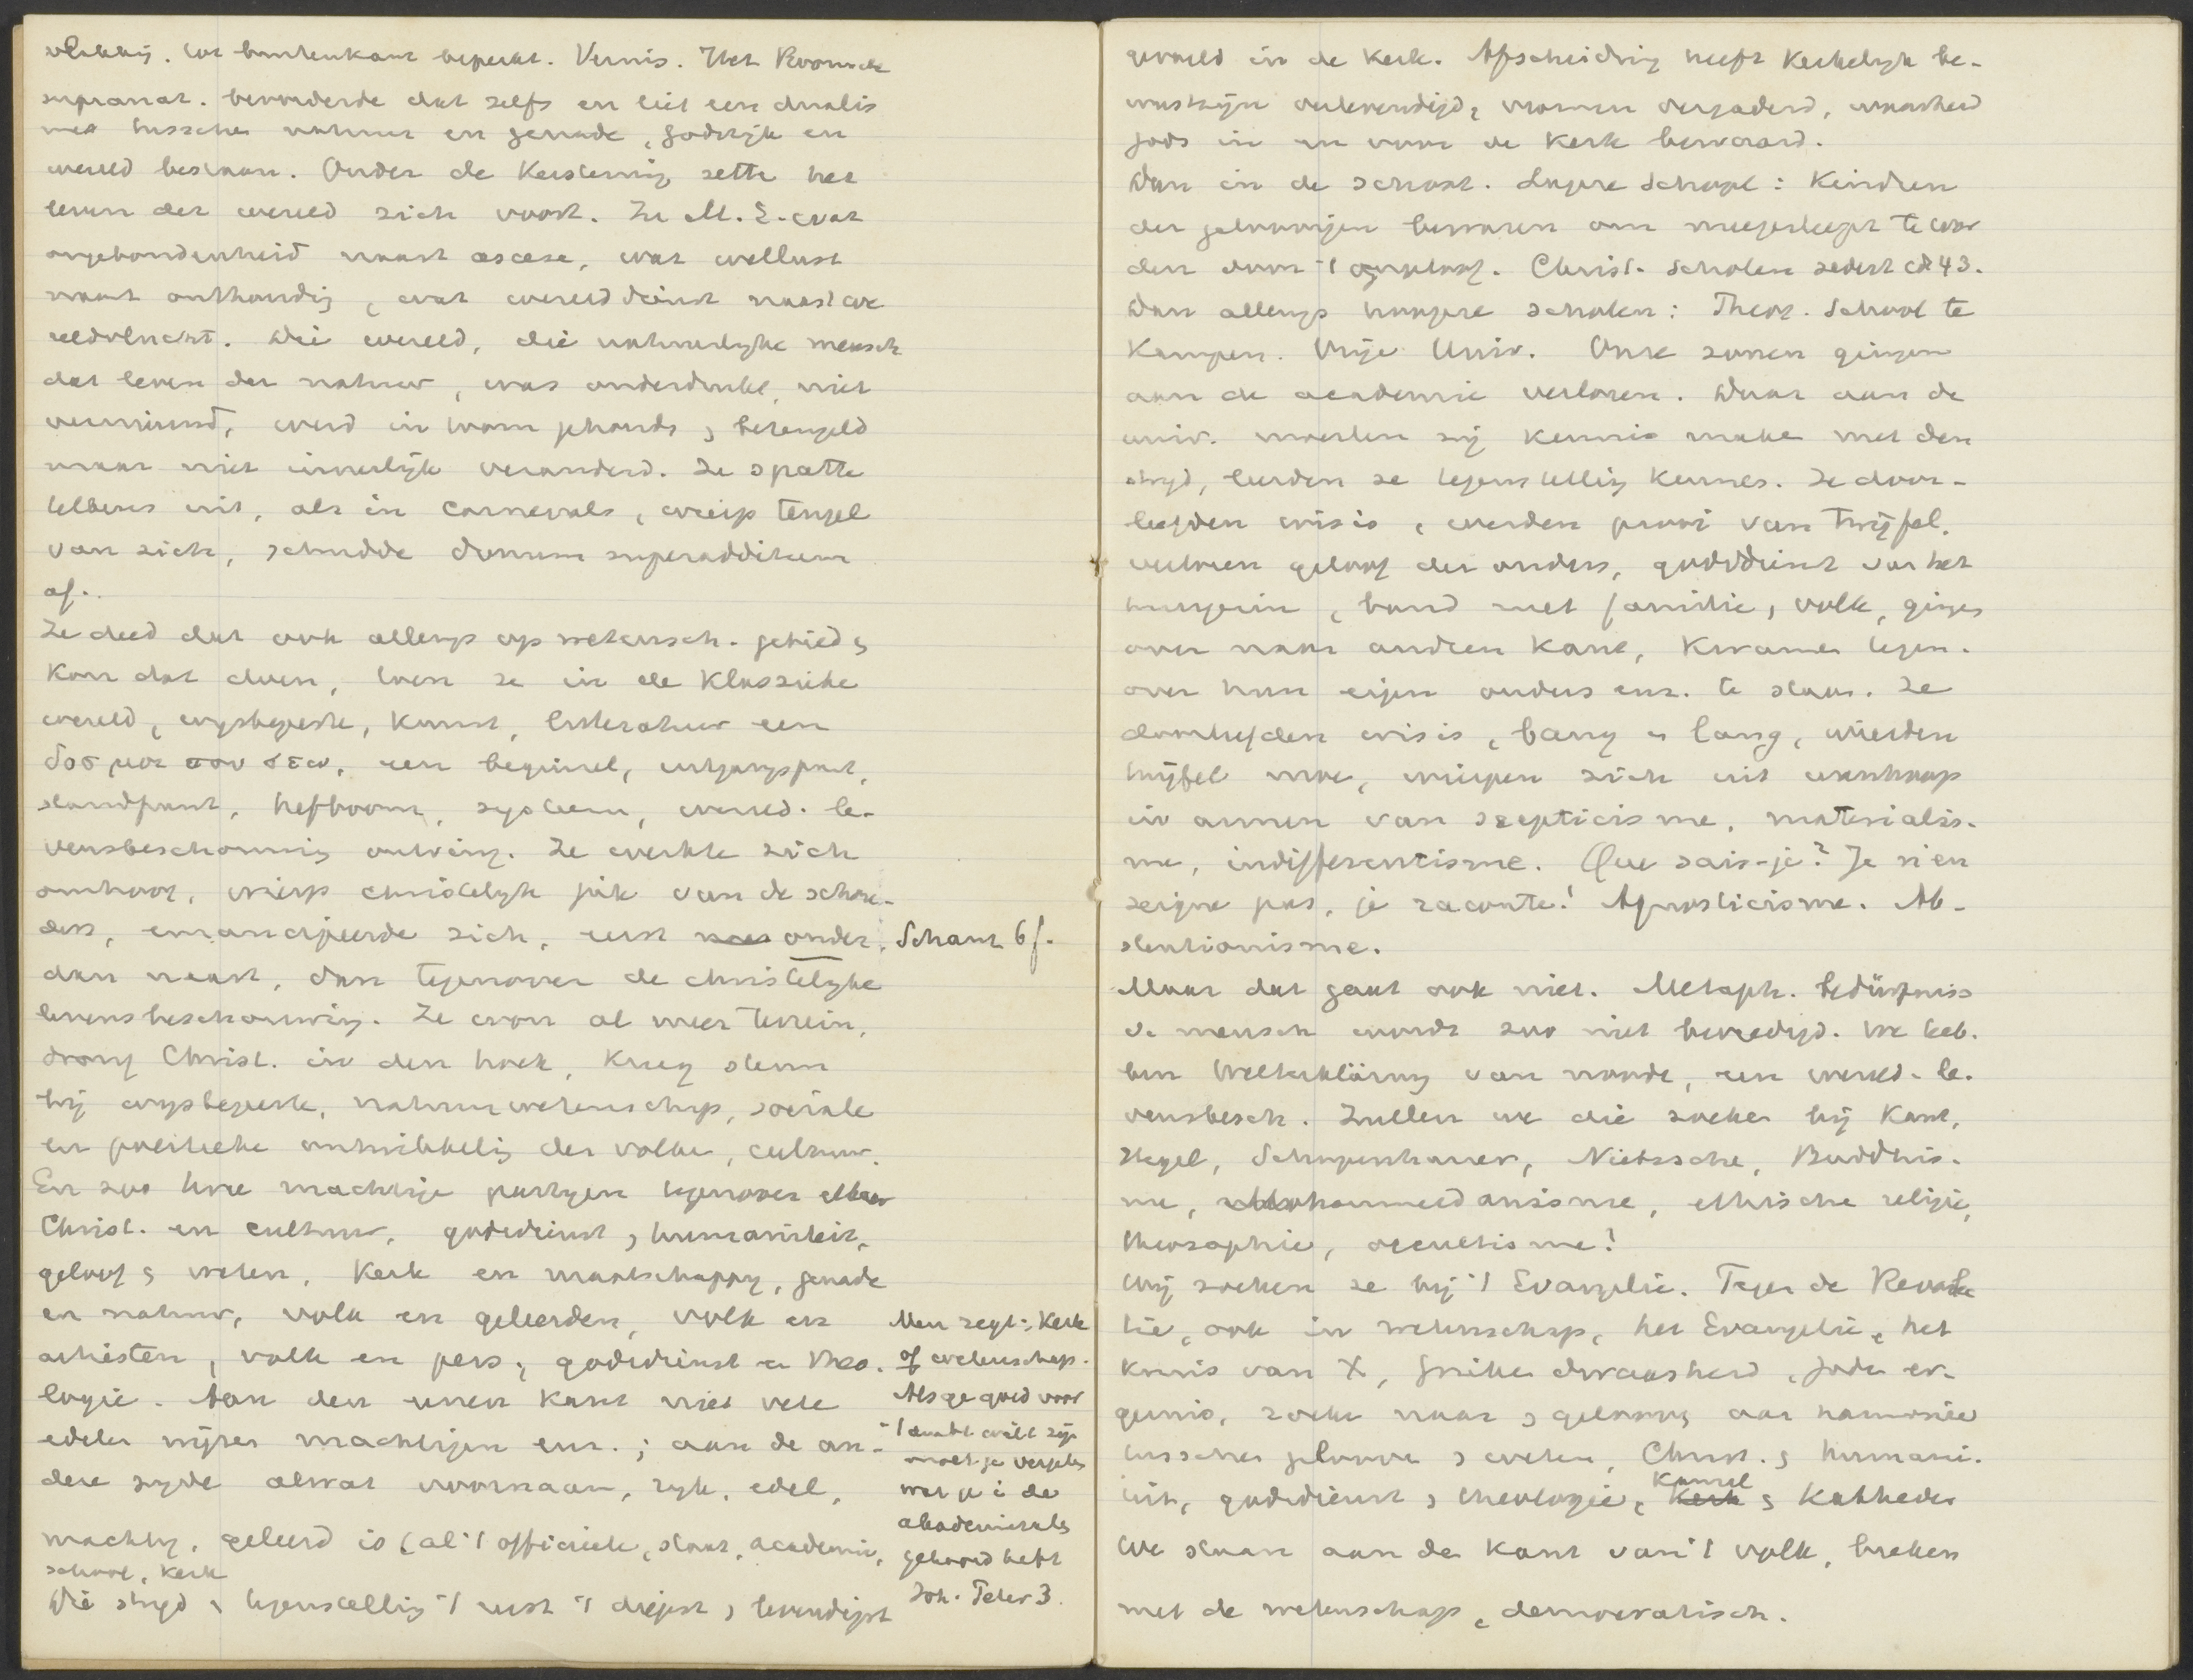 tot buitenkant beperkt. Vernis. Het Roomsche
supranat. bevorderde dat zelfs en liet een dualis
me tusschen natuur en genade, goddlijk en
wereld bestaan. Onder de Kerstening zette het
leven der wereld zich voort. In M. E. was
ongebondenheid naast ascese, was wellust
naast onthouding, was werelddienst naast we
reldvlucht. Die wereld, die natuurlyke mensch
dat leven der natuur, was onderdrukt, niet
vernieuwd, werd in toom gehouden, beteugeld
maar niet innerlijk veranderd. Ze spatte
telkens uit, als in Carnevals, wierp teugel
van zich, schudde donum superadditum
af.
Ze deed dat ook allengs op wetensch. gebied &
kon dat doen, toen ze in de Klassieke
wereld, wysbegeerte, Kunst, litteratuur een
δος μοι που στω, een beginsel, uitgangspunt,
standpunt, hefboom, systeem, wereld- le-
vensbeschouwing ontving. Ze werkte zich
omhoog, wierp christelyk juk van de schou-
ders, emancipeerde zich, eerst onder,
dan naast, dan tegenover de christelyke
levensbeschouwing. Ze won al meer terrein,
drong Christ. in den hoek, kreeg steun
bij wysbegeerte, natuurwetenschap, sociale
en politieke ontwikkeling der volken, cultuur.
En zoo twee machtige partyen tegenover elkaar
Christ. en cultuur, godsdienst, humaniteit,
geloof & weten, Kerk en maatschappy, genade
en natuur, volk en geleerden, volk en
artisten, volk en pers, godsdienst en theo-
logie. Aan den eenen kant niet vele
edelen wijzen machtigen enz.; aan de an-
dere zyde alwat voornaam, ryk, edel,
machtig, geleerd is (al 't officieele, staat, academie,
school, Kerk
Die stryd & tegenstelling 't eerst 't diepst & levendigst
Schanz 6f.
Men zegt: Kerk
of wetenschap.
Als ge goed voor
't ambt wilt zijn
moet ge vergeten
wat je i de
akademiezalen
gehoord hebt
Joh. Jeter 3.
gevoeld in de Kerk. Afscheiding heeft Kerkelyk be-
wustzijn verlevendigd, vromen vergaderd, waarheid
Gods in en voor de Kerk bewaard.
Dan in de school. Lagere School: Kinderen
der geloovigen bewaren om meegesleept te wor
den door 't ongeloof. Christ. Scholen sedert 43.
Dan allengs hoogere scholen: Theol. School te
Kampen. Vrije Univ. Onze zonen gingen
aan de academie verloren. Daar aan de
univ. moesten zij kennis maken met den
stryd, leerden ze tegenstelling kennen. Ze door-
leefden crisis, werden prooi van twijfel,
verloren geloof der ouders, godsdienst van het
huisgezin, band met familie, volk, gingen
over naar anderen kant, kwamen tegen-
over hun eigen ouders enz. te staan. Ze
doorleefden crisis, bang & lang, wierden
twijfel moe, wierpen zich uit wanhoop
in armen van scepticisme, materialis-
me, indifferentisme. Que sais-je? Je n'en
seigne pas, je raconte! Agnosticisme. Ab-
stentionisme.
Maar dat gaat ook niet. Metaph. Bedürfniss
v. mensch wordt zoo niet bevredigd. We heb-
ben Welterklärung van noode, een wereld- le-
vensbesch. Zullen we die zoeken bij Kant,
Hegel, Schopenhauer, Nietzsche, Buddhis-
me, Mohammedanisme, ethische religie,
theosophie, occultisme?
Wij zoeken ze bij 't Evangelie. Tegen de Revolu
tie, ook in wetenschap, het Evangelie, het
kruis van X, Grieken dwaasheid, Joden er-
genis, zoeken naar & gelooven aan harmonie
tusschen gelooven & weten, Christ. & humani-
teit, godsdienst & theologie, Kansel & Katheder
We staan aan den kant van 't volk, breken
met de wetenschap, democratisch.